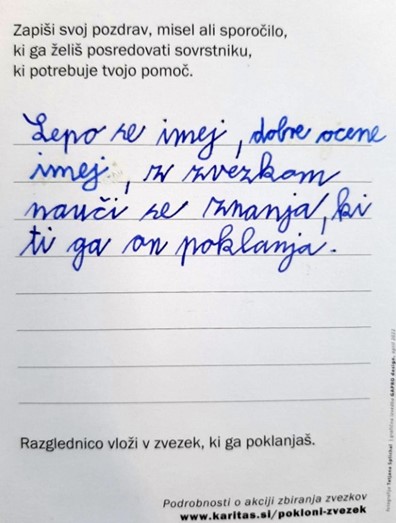 Zapiši svoj pozdrav, misel ali sporočilo,
ki ga želiš posredovati sovrstniku,
ki potrebuje tvojo pomoč.
Lepo se imej, dobre ocene
imej, z zvezkom
nauči se znanja, ki
ti ga on poklanja.
Razglednico vloži v zvezek, ki ga poklanjaš.
Podrobnosti o akciji zbiranja zvezkov
www.karitas.si/pokloni-zvezek